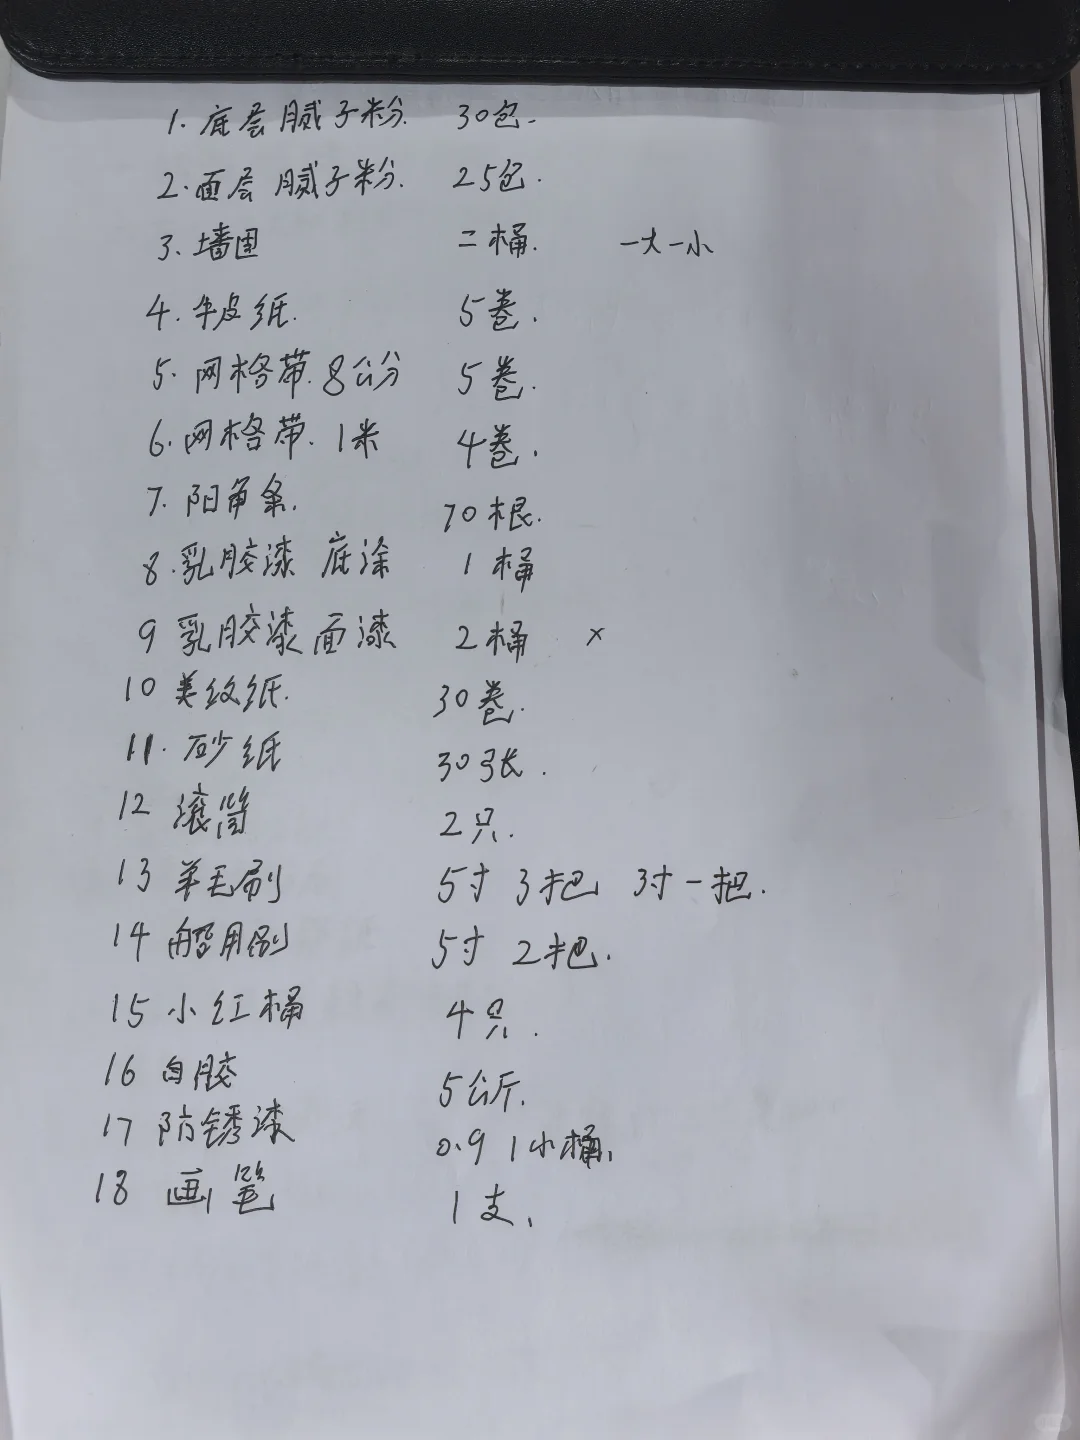 1. 底层腻子粉. 30包.
2. 面层腻子粉. 25包.
3. 墙固 二桶. 一大一小
4. 牛皮纸. 5卷.
5. 网格带. 8公分 5卷.
6. 网格带. 1米 4卷.
7. 阳角条. 70根.
8. 乳胶漆 底涂 1桶
9 乳胶漆面漆 2桶 ×
10 美纹纸. 30卷.
11. 砂纸 30张.
12 滚筒 2只.
13 羊毛刷 5寸 3把 3寸一把.
14 船用刷 5寸 2把.
15 小红桶 4只.
16 白胶 5公斤.
17 防锈漆 0.9 1小桶.
18 画笔 1支.